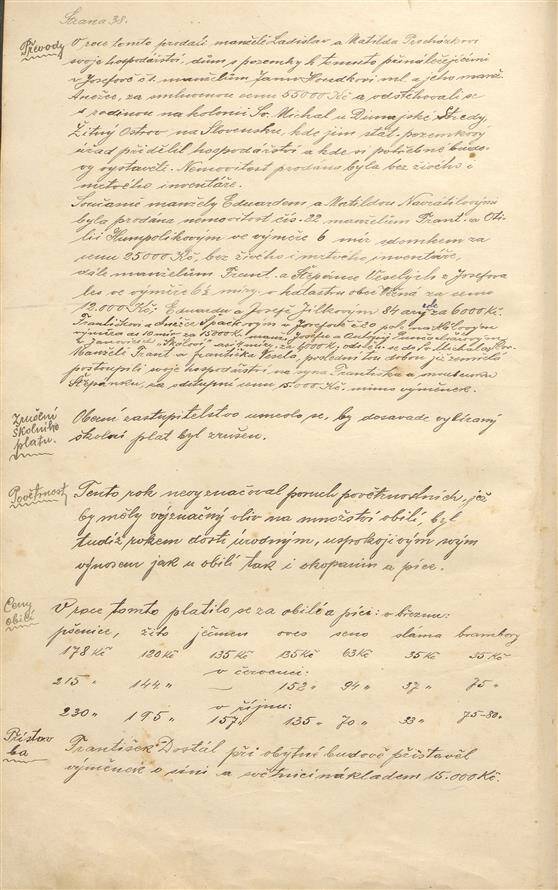 Strana 38.
Převody
V roce tomto prodali manželé Ladislav a Matilda Procházkovi
svoje hospodářství, dům s pozemky k tomuto přináležejícími
v Josefově čt. manželům Janu Houdkovi ml. a jeho manž.
Anežce, za smluvenou cenu 55000 Kč a odstěhovali se
s rodinou na kolonii Sv. Michal u Dunajské Středy,
Žitný Ostrov na Slovensku, kde jim stát. pozemkový
úřad přidělil hospodářství a kde si potřebné budo-
vy vystavěti. Nemovitost prodána byla bez živého i
mrtvého inventáře.
Současně manžely Eduardem a Matildou Navrátilovými
byla prodána nemovitost čís. 22 manželům Frant. a Oti-
lii Humpolíkovým ve výměře 6 měr s domkem za
cenu 25000 Kč, bez živého i mrtvého inventáře,
dále manželům Frant. a Štěpánce Veselých z Josefova
les ve výměře 6½ míry, v katastru obce Věžná za cenu
12.000 Kč, Eduardu a Josefě Jílkovým 84 arů role za 6000 Kč.
Františkovi a Anežce Špačkovým v Josefově č. 20 pole
výměra asi 10 měr za 15800 Kč
Manželé Frant. a Františka Vesela, poslední tu dobou již zemřelá
postoupili svoje hospodářství na syna Františka a manželku
Štěpánku, za odstupní cenu 5.000 Kč mimo výměnek.
Zrušení
školního
platu.
Obecní zastupitelstvo usneslo se, by dosavade vybíraný
školní plat byl zrušen.
Povětrnost
Tento rok nevyznačoval poruch povětrnostních, jež
by měly význačný vliv na množství obilí, byl
tudíž rokem dosti úrodným, uspokojivým svým
výnosem jak u obilí tak i okopanin a píce.
Ceny
obilí
V roce tomto platilo se za obilé a píci: v březnu:
pšenice, žito ječmen oves seno sláma brambory
178 Kč 120 Kč 135 Kč 135 Kč 63 Kč 35 Kč 35 Kč
v červenci:
215 „ 144 „ — 152 „ 94 „ 37 „ 75 „
v říjnu:
230 „ 195 „ 157 „ 135 „ 70 „ 33 „ 75-80 „
Přístav-
ba
František Dostál při obytní budově přistavěl
výměnek s síní a světnicí nákladem 15.000 Kč.